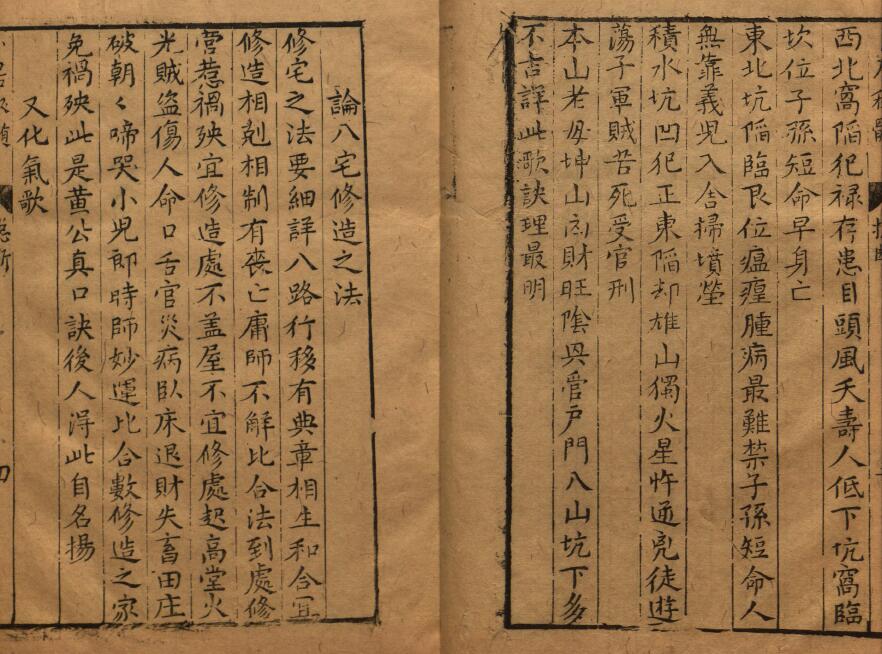 西北窩陷犯禄存患目頭風夭壽人低下坑窩臨
坎位子孫短命早身亡
東北坑陷臨艮位瘟瘽腫病最難禁子孫短命人
無靠義児入舍掃墳塋
積水坑凹犯正東陷却雄山獨火星忤逆兇徒遊
蕩子軍賊苦死受官刑
本山老母坤山高財旺陰興管戸門八山坑下多
不吉詳此歌訣理最明
論八宅修造之法
修宅之法要細詳八路行移有典章相生和合宜
修造相剋相制有喪亡庸師不解比合法到處修
營惹禍殃宜修造處不盖屋不宜修處起高堂火
光賊盗傷人命口舌官災病臥床退財失畜田庄
破朝々啼哭小児郎時師妙運比合數修造之家
免禍殃此是黄公真口訣後人得此自名揚
又化氣歌